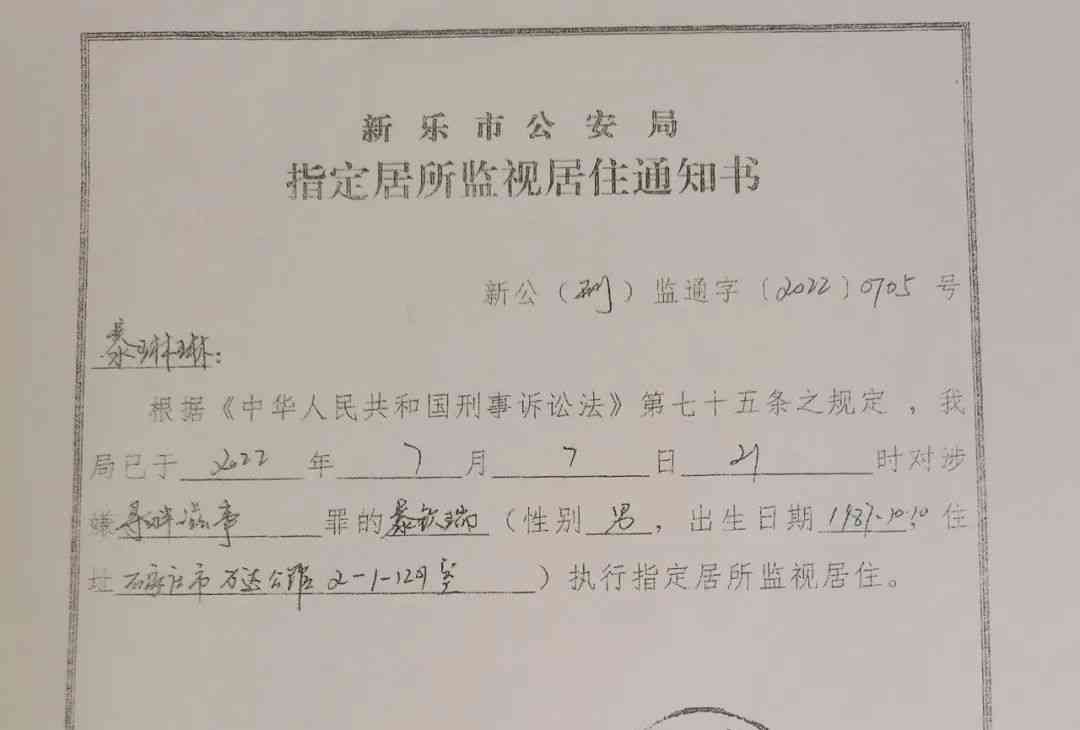 新乐市公安局
指定居所监视居住通知书
新公（刑）监通字〔2022〕0705 号
暴琳琳：
根据《中华人民共和国刑事诉讼法》第七十五条之规定，我
局已于 2022 年 7 月 7 日 21 时对涉
嫌寻衅滋事 罪的暴钦瑞（性别 男，出生日期 1987.10.10 住
址 石家庄市万达公馆 2-1-1207室）执行指定居所监视居住。